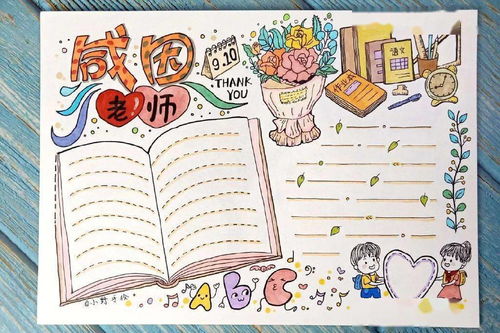 感恩
老师
9.10
THANK
YOU
语文
作业本
Abc